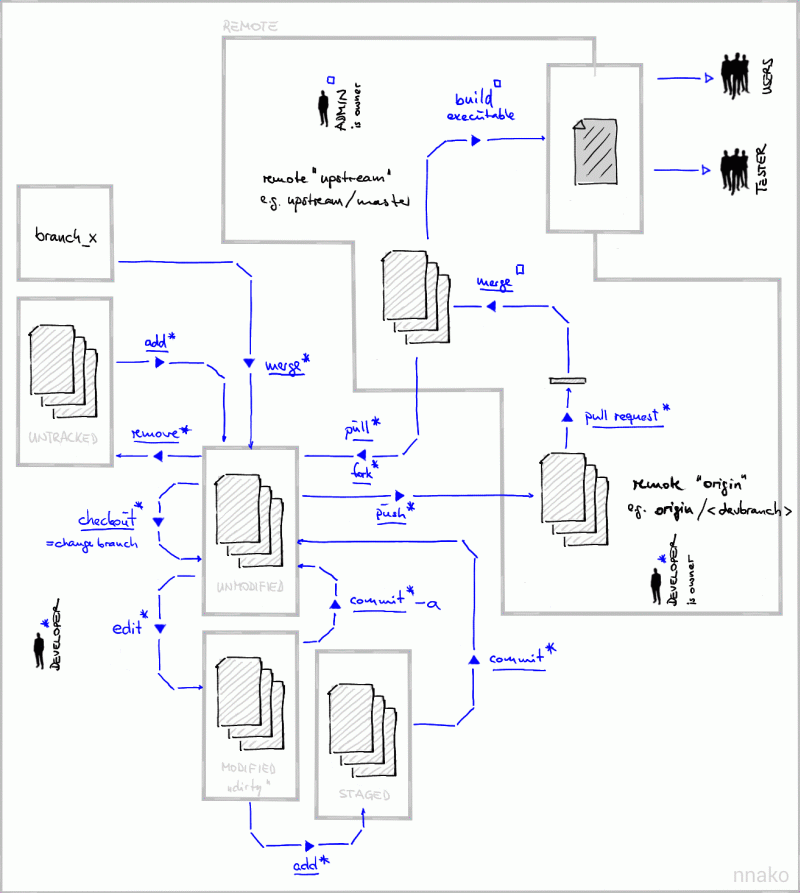 REMOTE
USERS
ADMIN
is owner
build
executable
TESTER
remote "upstream"
e.g. upstream/master
branch_x
merge
add*
merge*
UNTRACKED
remove*
pull*
fork*
pull request*
push*
remote "origin"
e.g. origin/<devbranch>
checkout*
=change branch
UNMODIFIED
* DEVELOPER
is owner
edit*
commit* -a
* DEVELOPER
commit*
MODIFIED
"dirty"
STAGED
add*
nnako